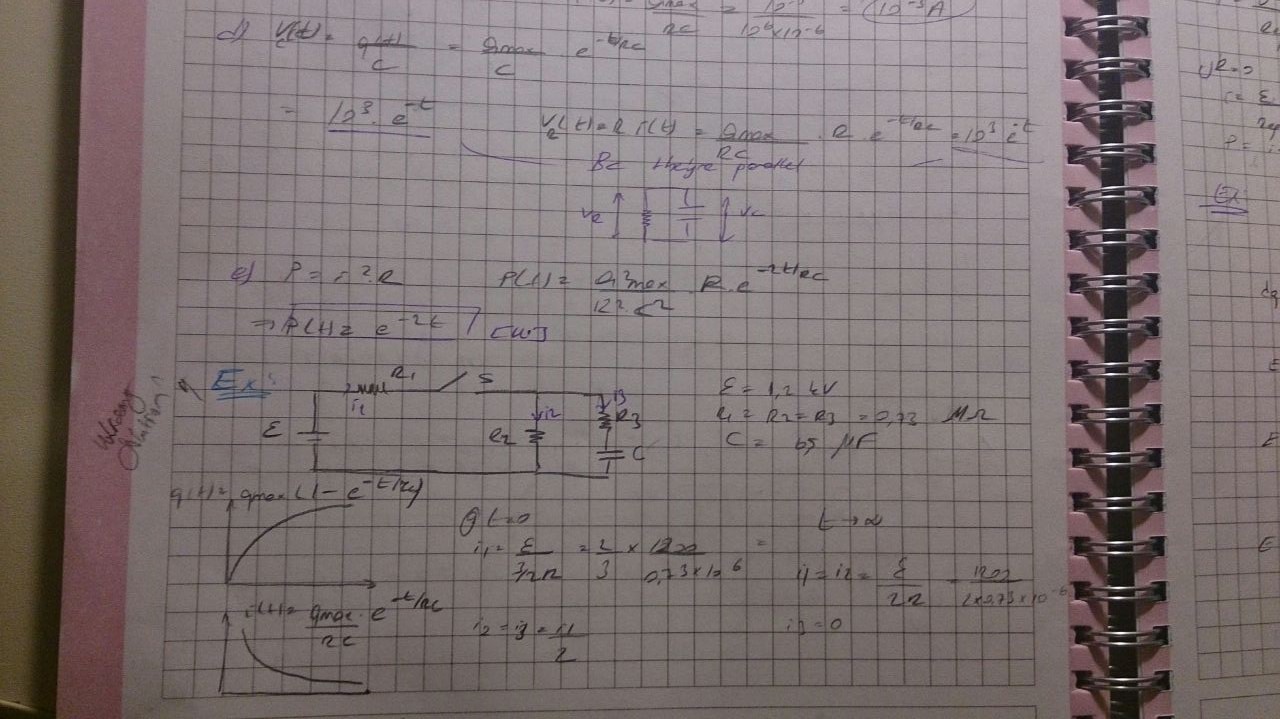 = qmax / RC = 10⁻³ / 10⁶×10⁻⁶ = 10⁻³A
d) Vc(t) = q(t) / C = qmax / C e^-t/RC
= 10³. e^-t
VR(t) = R i(t) = qmax / RC . R e^-t/RC = 10³ e^-t
Bc they're parallel
VR VC
e) P = i². R P(t) = q²max / R². C² R. e^-2t/RC
⇒ P(t) = e^-2t [W]
Ex:
R1 S
i1 i2 i3
ε R2 R3 C
ε = 1,2 kV
R1 = R2 = R3 = 0,73 MΩ
C = 6,5 μF
q(t) = qmax (1 - e^-t/RC)
@ t=0
i1 = ε / 3/2R = 2 / 3 × 1200 / 0,73×10⁶ =
i2 = i3 = i1 / 2
t → ∞
i1 = i2 = ε / 2R = 1200 / 2×0,73×10⁻⁶
i3 = 0
i(t) = qmax . e^-t/RC / RC
Ex: